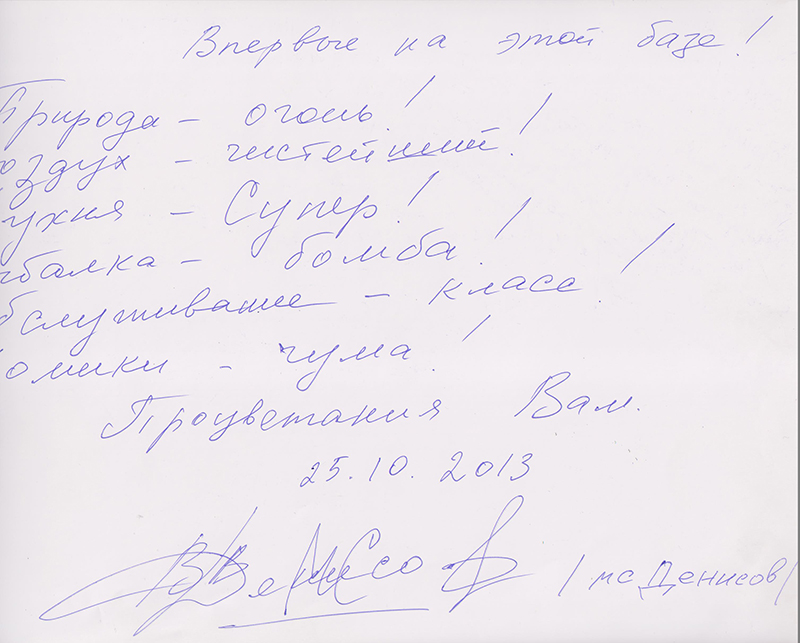 Впервые на этой базе!
Природа - огонь!
оздух - чистейший!
ухня - Супер!
ыбалка - бомба!
бслуживание - класс!
омики - чума!
Процветания Вам.
25.10.2013
Денисов